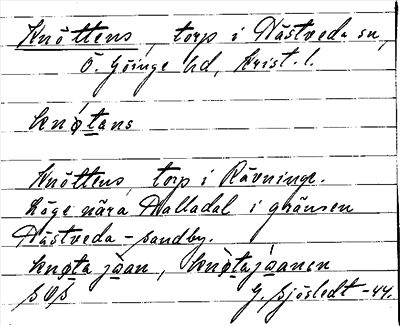 Knöttens, torp i Nästveda sn,
Ö. Göinge hd, Krist. l.
knǿtans
Knöttens, torp i Rävninge.
Läge nära Walladal i gränsen
Nästveda - Sandby.
knøta jàan, knø̀tajáanen
SOS G. Sjöstedt -44.